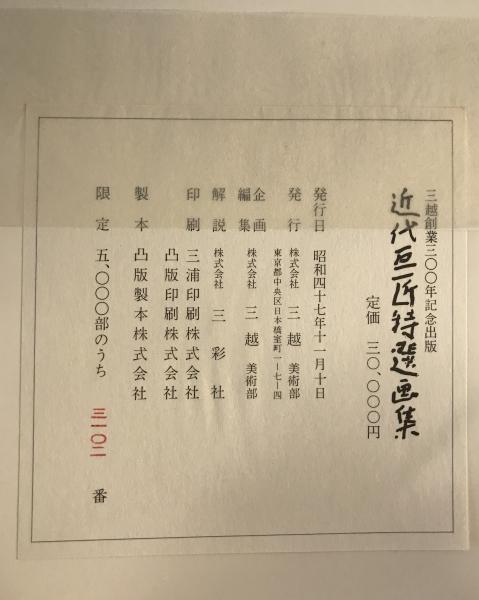 三越創業三〇〇年記念出版
近代巨匠特選画集
定価 三〇、〇〇〇円
発行日 昭和四十七年十一月十日
発行 株式会社 三越 美術部
東京都中央区日本橋室町一ー七ー四
企画
編集 株式会社 三越 美術部
解説 株式会社 三彩社
印刷 三浦印刷株式会社
凸版印刷株式会社
製本 凸版製本株式会社
限定 五、〇〇〇部のうち 三一〇二 番